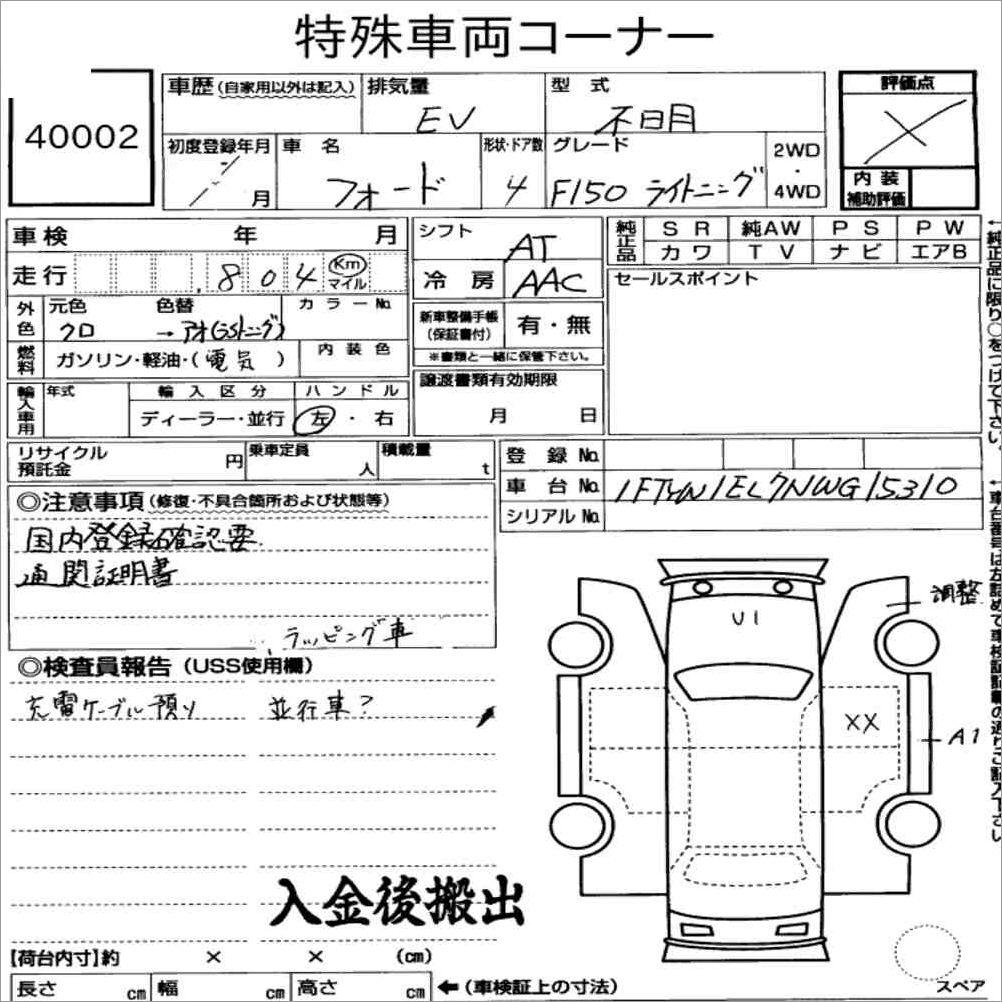 特殊車両コーナー
40002
車歴(自家用以外は記入) 排気量 型 式 評価点
EV 不日月 ×
初度登録年月 車 名 形状・ドア数 グレード 2WD
・
月 フォード 4 F150 ライトニング 4WD 内 装
補助評価
車 検 年 月
走 行 .804 Km
マイル
外色 元色 色替 カラーNo.
クロ →
燃料 ガソリン・軽油・(電気) 内装色
輸入車用 年式 輸入区分 ハンドル
ディーラー・並行 左・右
シフト AT
冷 房 AAC
新車整備手帳
(保証書付) 有・無
※書類と一緒に保管下さい。
譲渡書類有効期限
月 日
純正品 SR 純AW PS PW
カワ TV ナビ エアB
セールスポイント
←純正品に限り○をつけて下さい。
リサイクル
預託金 円 乗車定員 人 積載量 t
登 録 No.
車 台 No. 1FTVW1EL7NWG15310
シリアル No.
←車台番号は左詰めで車検証記載の通りご記入下さい
◎注意事項(修復・不具合箇所および状態等)
国内登録確認要
通関証明書
ラッピング車
◎検査員報告(USS使用欄)
充電ケーブル預り 並行車?
U1
調整
XX
A1
入金後搬出
【荷台内寸】約 × × (cm)
長さ cm 幅 cm 高さ cm ←(車検証上の寸法)
スペア